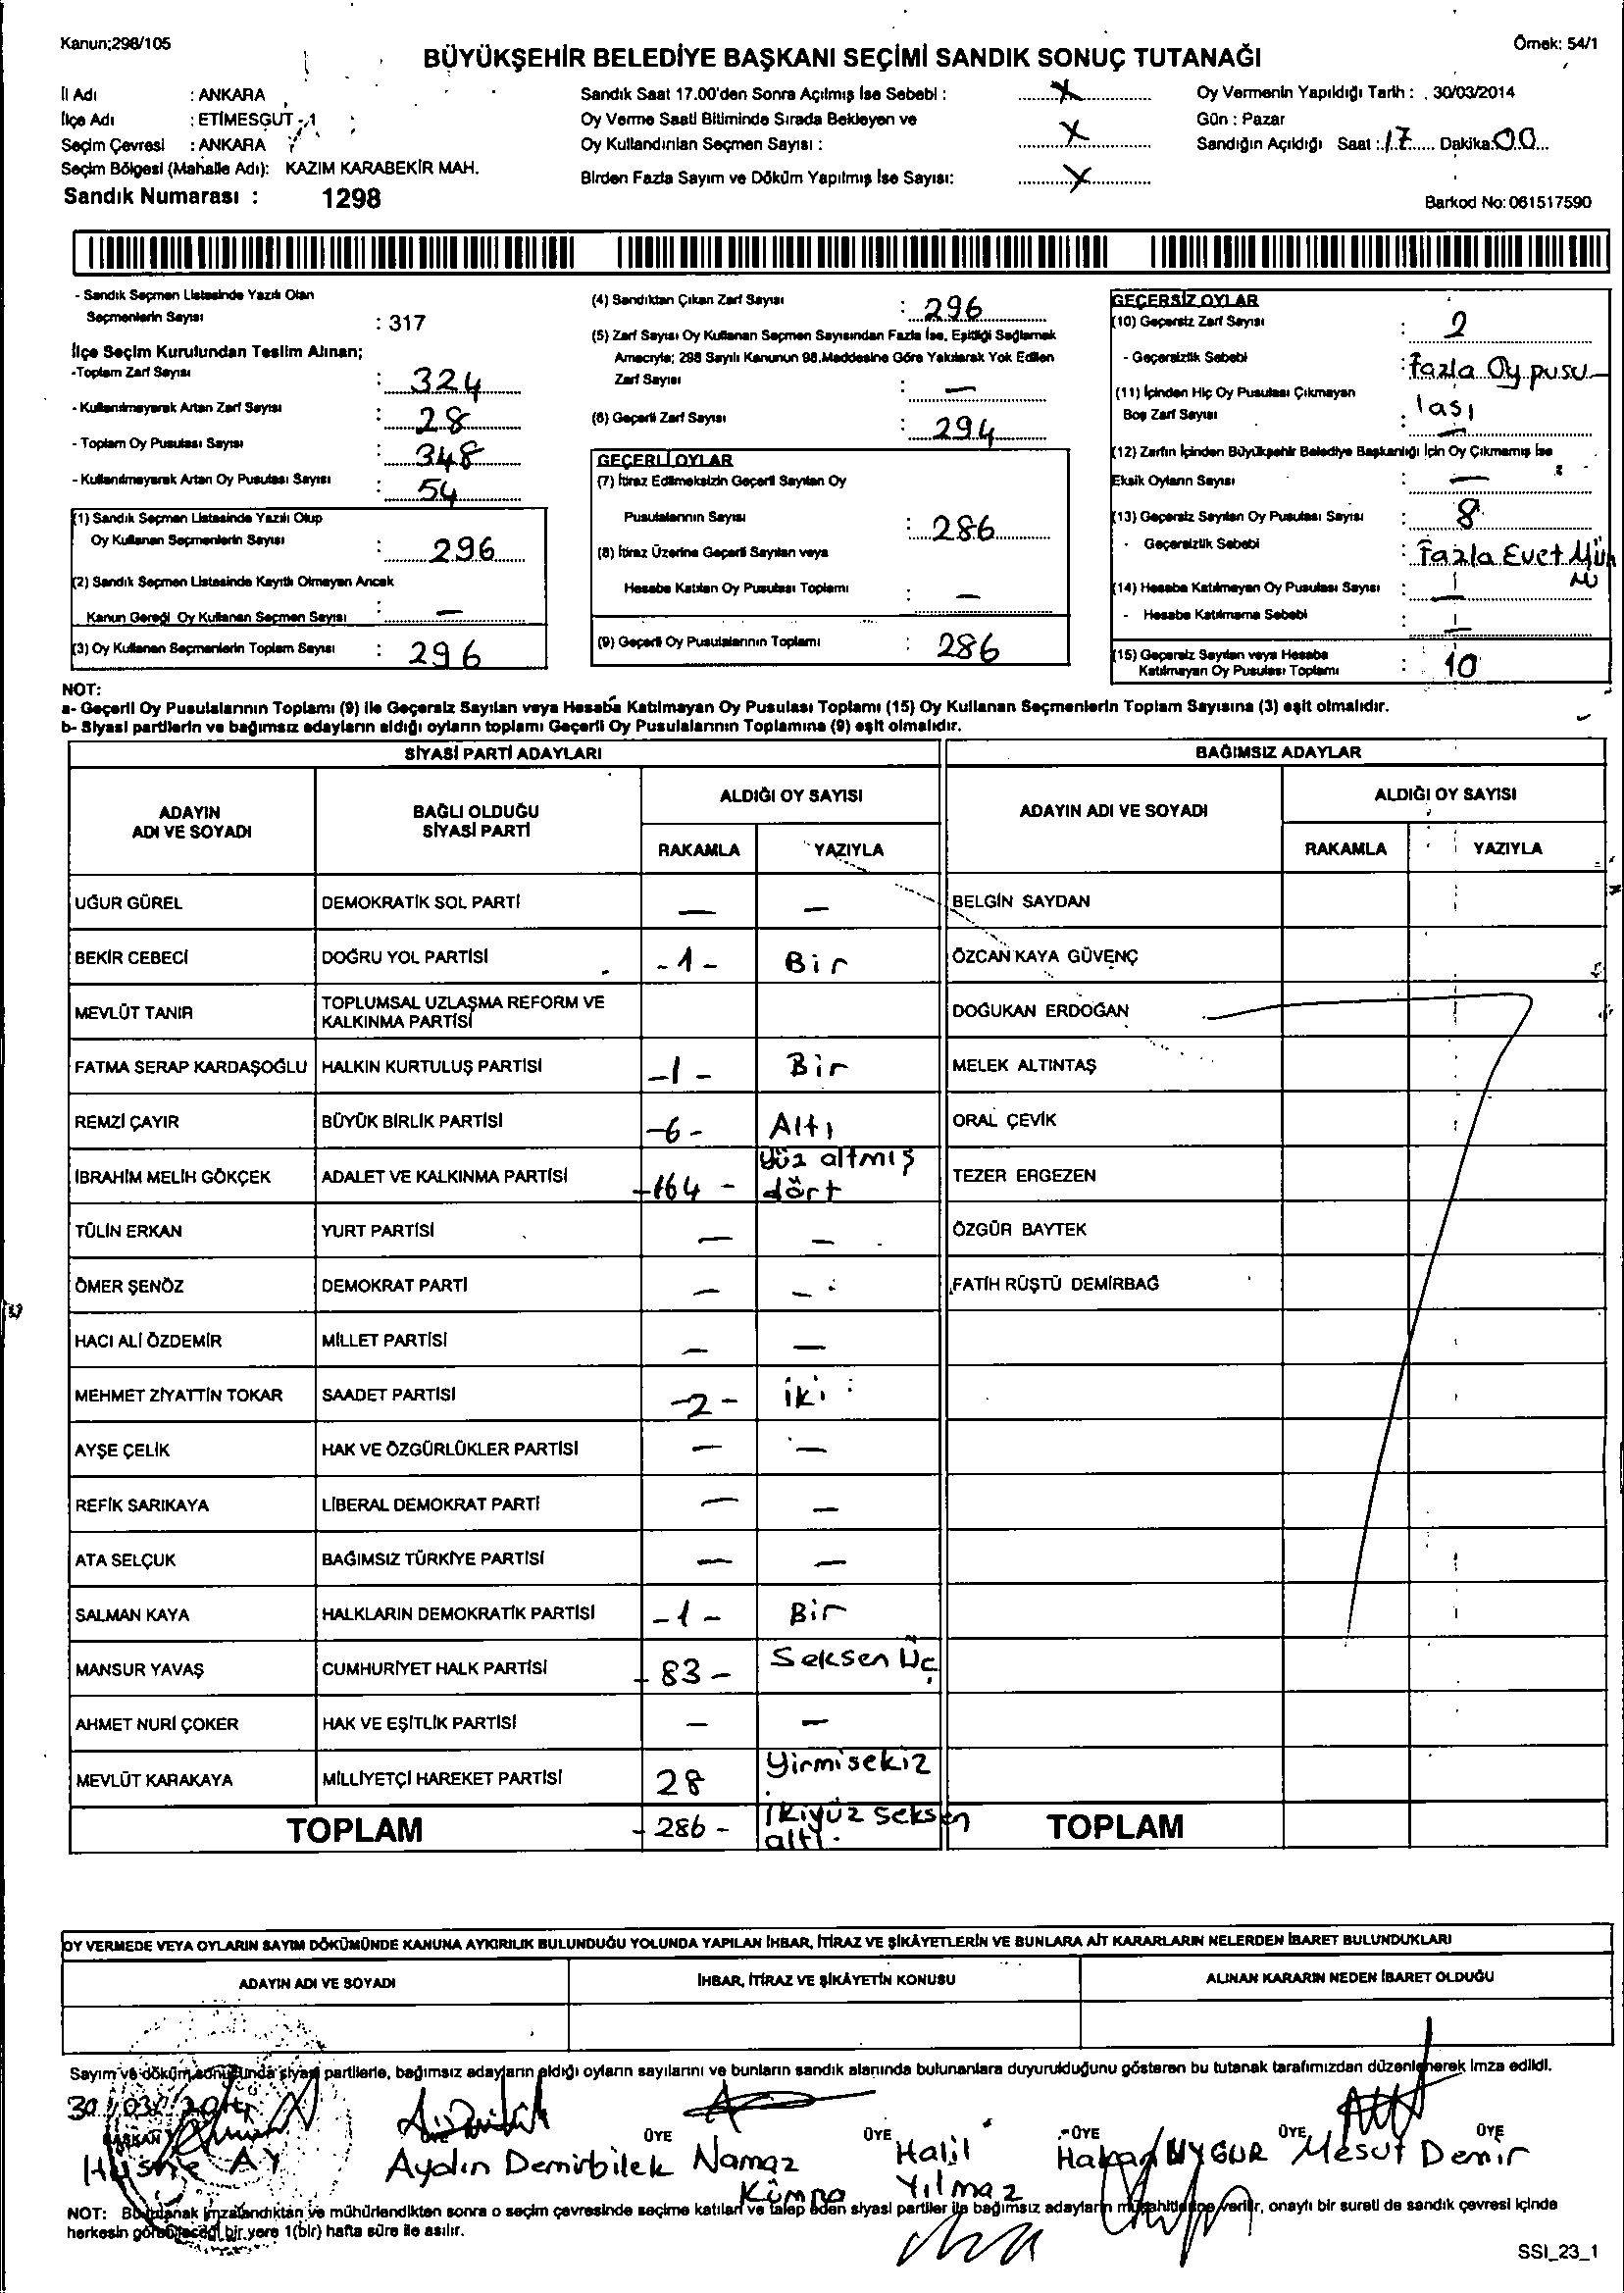 Kanun;298/105
Örnek: 54/1
BÜYÜKŞEHİR BELEDİYE BAŞKANI SEÇİMİ SANDIK SONUÇ TUTANAĞI
İl Adı : ANKARA
İlçe Adı : ETİMESGUT - 1
Seçim Çevresi : ANKARA
Seçim Bölgesi (Mahalle Adı): KAZIM KARABEKİR MAH.
Sandık Numarası : 1298
Sandık Saat 17.00'den Sonra Açılmış İse Sebebi : X
Oy Verme Saati Bitiminde Sırada Bekleyen ve
Oy Kullandırılan Seçmen Sayısı : X
Birden Fazla Sayım ve Döküm Yapılmış İse Sayısı: X
Oy Vermenin Yapıldığı Tarih : 30/03/2014
Gün : Pazar
Sandığın Açıldığı Saat : 17 Dakika: 00
Barkod No: 061517590
- Sandık Seçmen Listesinde Yazılı Olan
Seçmenlerin Sayısı : 317
İlçe Seçim Kurulundan Teslim Alınan;
-Toplam Zarf Sayısı : 324
- Kullanılmayarak Artan Zarf Sayısı : 28
- Toplam Oy Pusulası Sayısı : 348
- Kullanılmayarak Artan Oy Pusulası Sayısı : 54
(1) Sandık Seçmen Listesinde Yazılı Olup
Oy Kullanan Seçmenlerin Sayısı : 296
(2) Sandık Seçmen Listesinde Kayıtlı Olmayan Ancak
Kanun Gereği Oy Kullanan Seçmen Sayısı : —
(3) Oy Kullanan Seçmenlerin Toplam Sayısı : 296
(4) Sandıktan Çıkan Zarf Sayısı : 296
(5) Zarf Sayısı Oy Kullanan Seçmen Sayısından Fazla İse, Eşitliği Sağlamak
Amacıyla; 298 Sayılı Kanunun 98.Maddesine Göre Yakılarak Yok Edilen
Zarf Sayısı : —
(6) Geçerli Zarf Sayısı : 294
GEÇERLİ OYLAR
(7) İtiraz Edilmeksizin Geçerli Sayılan Oy
Pusulalarının Sayısı : 286
(8) İtiraz Üzerine Geçerli Sayılan veya
Hesaba Katılan Oy Pusulası Toplamı : —
(9) Geçerli Oy Pusulalarının Toplamı : 286
GEÇERSİZ OYLAR
(10) Geçersiz Zarf Sayısı : 2
- Geçersizlik Sebebi : Fazla Oy pusu
(11) İçinden Hiç Oy Pusulası Çıkmayan lası
Boş Zarf Sayısı : —
(12) Zarfın İçinden Büyükşehir Belediye Başkanlığı İçin Oy Çıkmamış İse
Eksik Oyların Sayısı : —
(13) Geçersiz Sayılan Oy Pusulası Sayısı : 8
- Geçersizlik Sebebi : Fazla Evet Müh
(14) Hesaba Katılmayan Oy Pusulası Sayısı : —
- Hesaba Katılmama Sebebi : —
(15) Geçersiz Sayılan veya Hesaba
Katılmayan Oy Pusulası Toplamı : 10
NOT:
a- Geçerli Oy Pusulalarının Toplamı (9) ile Geçersiz Sayılan veya Hesaba Katılmayan Oy Pusulası Toplamı (15) Oy Kullanan Seçmenlerin Toplam Sayısına (3) eşit olmalıdır.
b- Siyasi partilerin ve bağımsız adayların aldığı oyların toplamı Geçerli Oy Pusulalarının Toplamına (9) eşit olmalıdır.
SİYASİ PARTİ ADAYLARI
BAĞIMSIZ ADAYLAR
ADAYIN ADI VE SOYADI
BAĞLI OLDUĞU SİYASİ PARTİ
ALDIĞI OY SAYISI
RAKAMLA YAZIYLA
ADAYIN ADI VE SOYADI
ALDIĞI OY SAYISI
RAKAMLA YAZIYLA
UĞUR GÜREL DEMOKRATİK SOL PARTİ — — BELGİN SAYDAN
BEKİR CEBECİ DOĞRU YOL PARTİSİ -1- Bir ÖZCAN KAYA GÜVENÇ
MEVLÜT TANIR TOPLUMSAL UZLAŞMA REFORM VE KALKINMA PARTİSİ DOĞUKAN ERDOĞAN
FATMA SERAP KARDAŞOĞLU HALKIN KURTULUŞ PARTİSİ -1- Bir MELEK ALTINTAŞ
REMZİ ÇAYIR BÜYÜK BİRLİK PARTİSİ -6- Altı ORAL ÇEVİK
İBRAHİM MELİH GÖKÇEK ADALET VE KALKINMA PARTİSİ -164- yüz altmış dört TEZER ERGEZEN
TÜLİN ERKAN YURT PARTİSİ — — ÖZGÜR BAYTEK
ÖMER ŞENÖZ DEMOKRAT PARTİ — — FATİH RÜŞTÜ DEMİRBAĞ
HACI ALİ ÖZDEMİR MİLLET PARTİSİ — —
MEHMET ZİYATTİN TOKAR SAADET PARTİSİ -2- iki
AYŞE ÇELİK HAK VE ÖZGÜRLÜKLER PARTİSİ — —
REFİK SARIKAYA LİBERAL DEMOKRAT PARTİ — —
ATA SELÇUK BAĞIMSIZ TÜRKİYE PARTİSİ — —
SALMAN KAYA HALKLARIN DEMOKRATİK PARTİSİ -1- Bir
MANSUR YAVAŞ CUMHURİYET HALK PARTİSİ - 83 - Seksen Üç
AHMET NURİ ÇOKER HAK VE EŞİTLİK PARTİSİ — —
MEVLÜT KARAKAYA MİLLİYETÇİ HAREKET PARTİSİ 28 Yirmisekiz
TOPLAM - 286 - İkiyüz seksen altı. TOPLAM
OY VERMEDE VEYA OYLARIN SAYIM DÖKÜMÜNDE KANUNA AYKIRILIK BULUNDUĞU YOLUNDA YAPILAN İHBAR, İTİRAZ VE ŞİKÂYETLERİN VE BUNLARA AİT KARARLARIN NELERDEN İBARET BULUNDUKLARI
ADAYIN ADI VE SOYADI İHBAR, İTİRAZ VE ŞİKÂYETİN KONUSU ALINAN KARARIN NEDEN İBARET OLDUĞU
Sayım ve döküm sonucunda siyasi partilerle, bağımsız adayların aldığı oyların sayılarını ve bunların sandık alanında bulunanlara duyurulduğunu gösteren bu tutanak tarafımızdan düzenlenerek imza edildi.
30/03/2014
BAŞKAN ÜYE ÜYE ÜYE ÜYE ÜYE ÜYE
AY Aydın Demirbilek Namaz Halil Yılmaz Hakan UYGUR Mesut Demir
NOT: Bu tutanak imzalandıktan ve mühürlendikten sonra o seçim çevresinde seçime katılan ve talep eden siyasi partiler ile bağımsız adayların müşahitlerine verilir, onaylı bir sureti de sandık çevresi içinde
herkesin görebileceği bir yere 1(bir) hafta süre ile asılır.
SSI_23_1